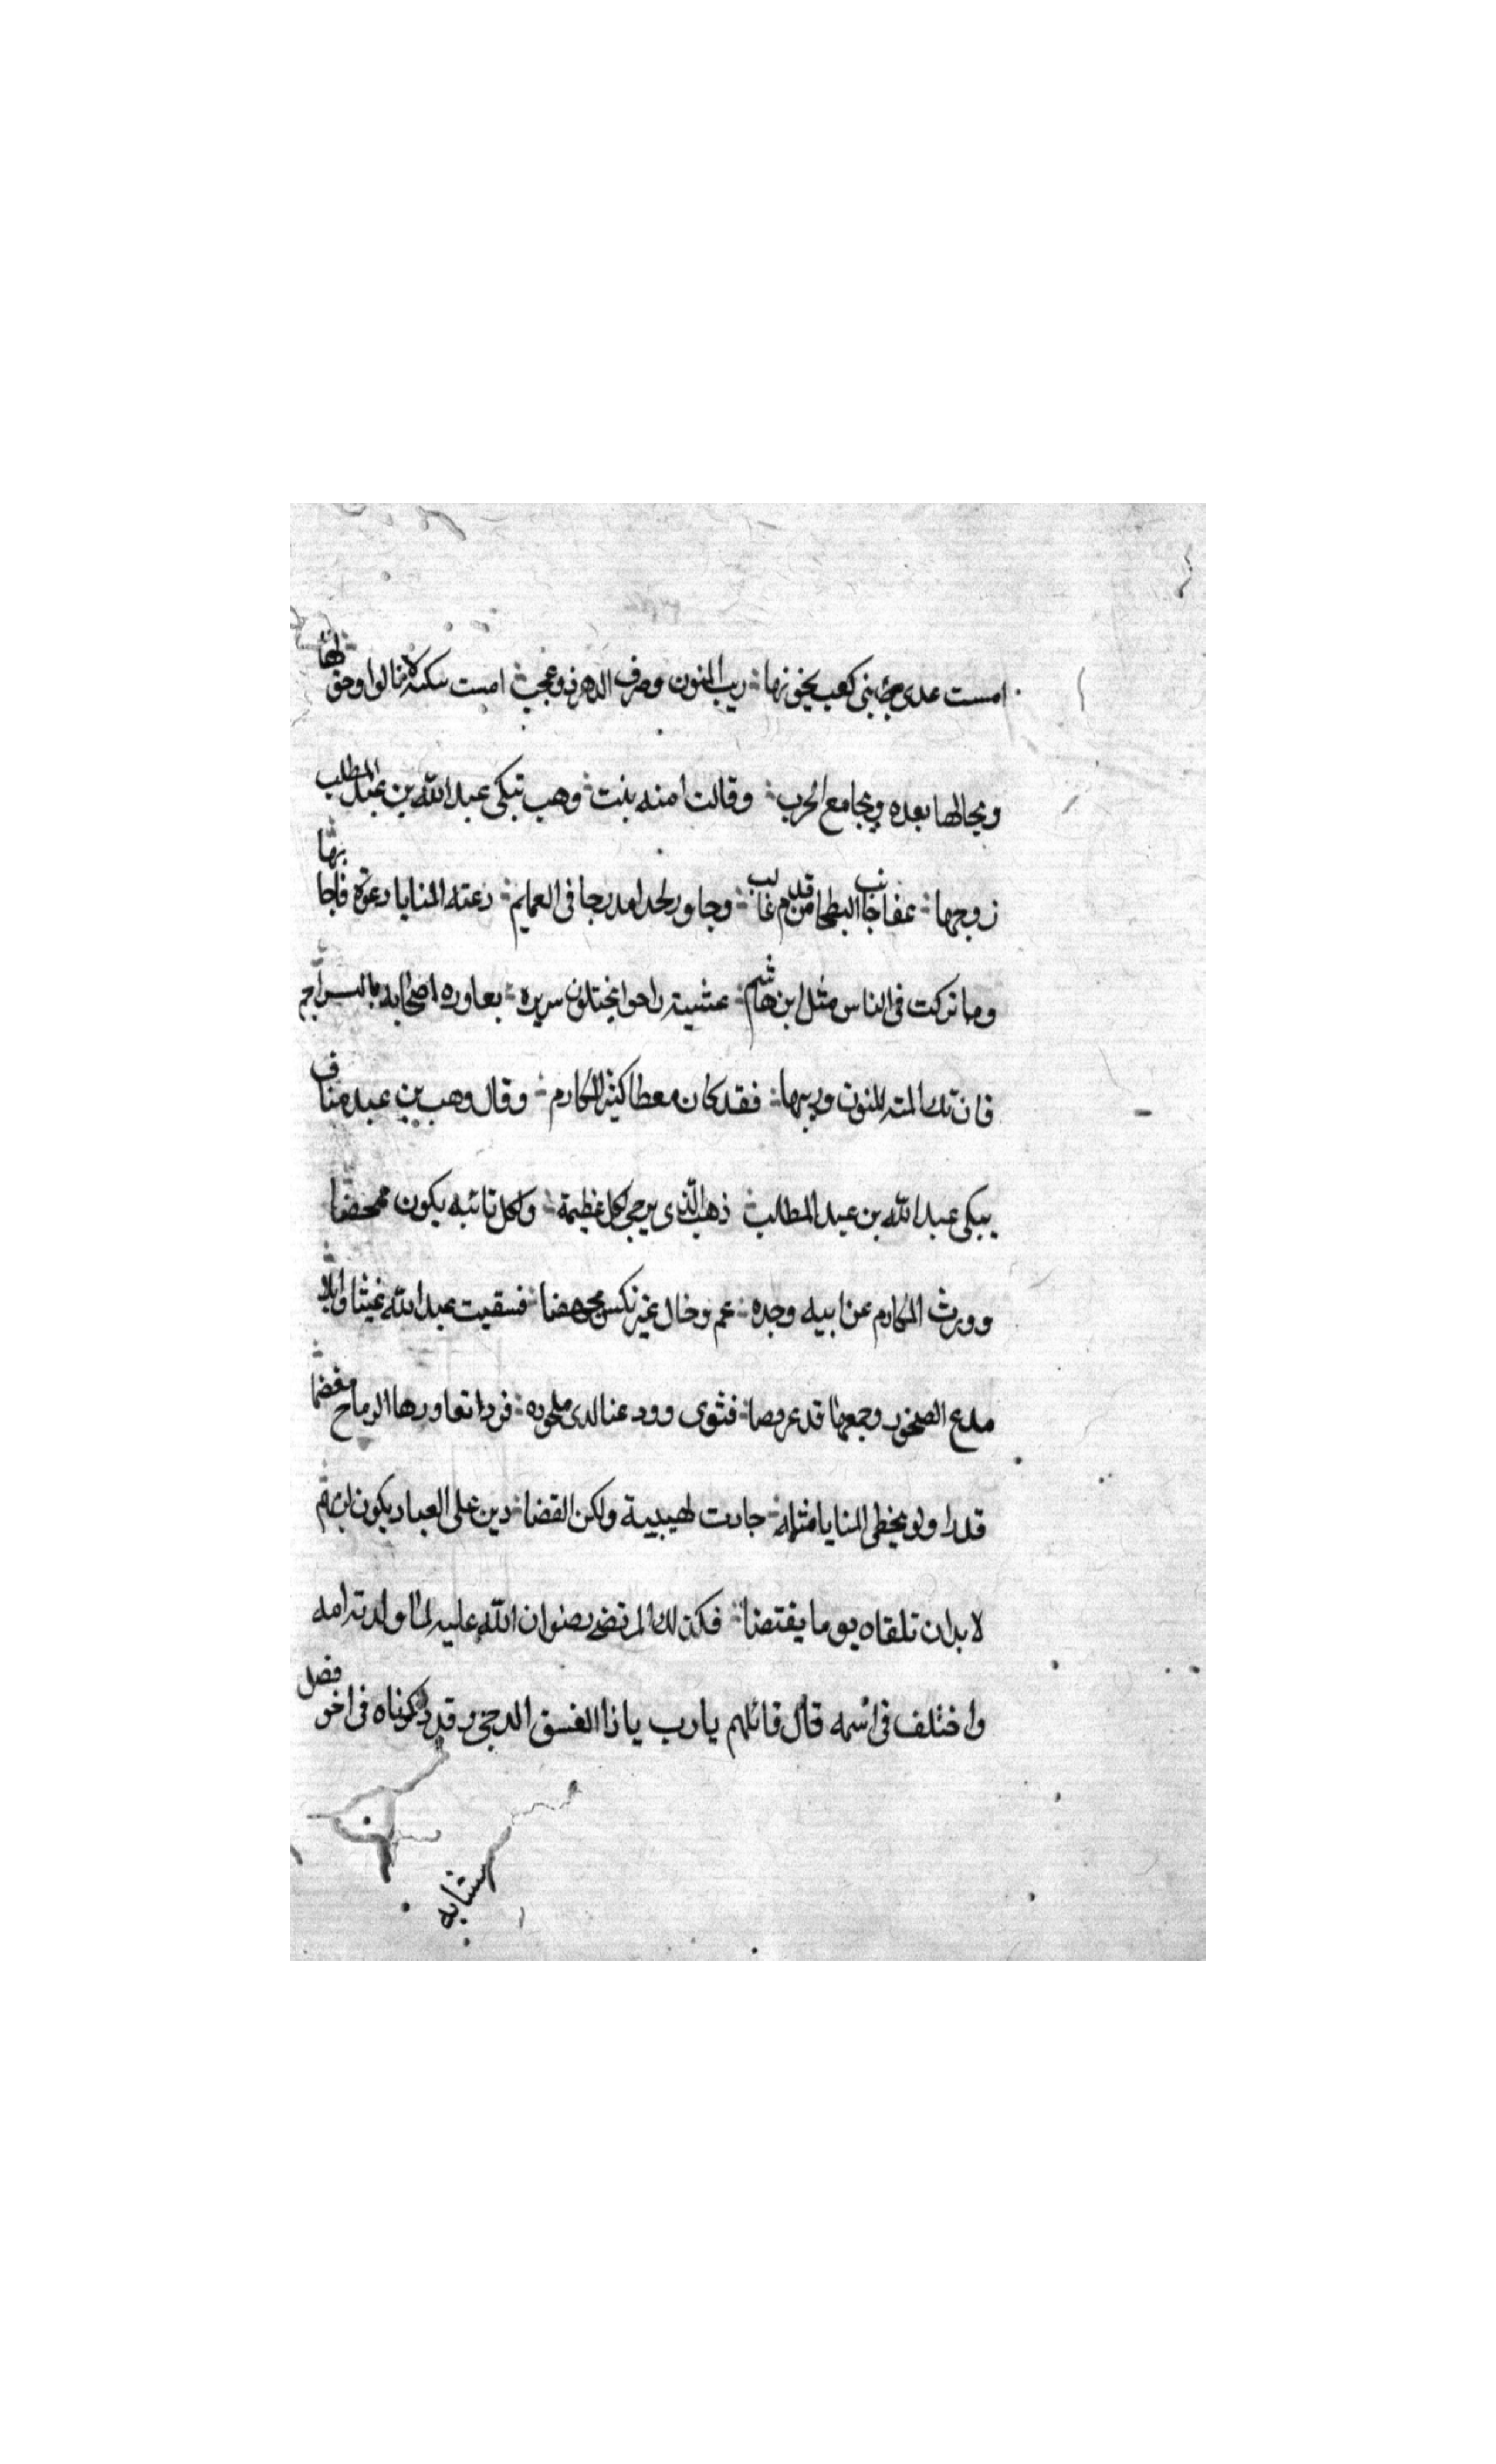 امست عدى بنى كعب يخونها ريب المنون وصرف الدهر ذو عجب امست سكنه لا نالوا وحق لها
ومجالها بعده ومجامع الحرب وقالت امنه بنت وهب تبكى عبد الله بن عبد المطلب
زوجها عفا جانب البطحا من قدم غالب وجاور لحدا مدرجا فى العمايم دعته المنايا دعوة فاجابها
وما تركت فى الناس مثل ابن هاشم عشية راحوا يختلون سريره بعاوره اصحابه بالسراجم
فان تك المته المنون وريبها فقد كان معطا كثير المكارم وقال وهب بن عبد مناف
يبكى عبد الله بن عبد المطلب ذهب الذى يرجى لكل عظيمة ولكل نائبه يكون ممحضا
وورث المكارم عن ابيه وجده عم وخال غير نكس مجهضا فسقيت عبد الله غيثا وابلا
مدع الصخور وجمعها قد عرمضا فثوى وودعنا لدى ملحوده فردا تعاورها الرماح مغضا
قدرا ولو يخطى المنايا مثله جادت لهيبية ولكن القضا دين على العباد يكون
لا بد ان تلقاه يوما يقتضا فكذلك المرتضى رضوان الله عليه لما ولدته امه
واختلف فى اسمه قال قائلهم يا رب يا ذا الغسق الدجى وقد ذكرناه فى اخر فصل